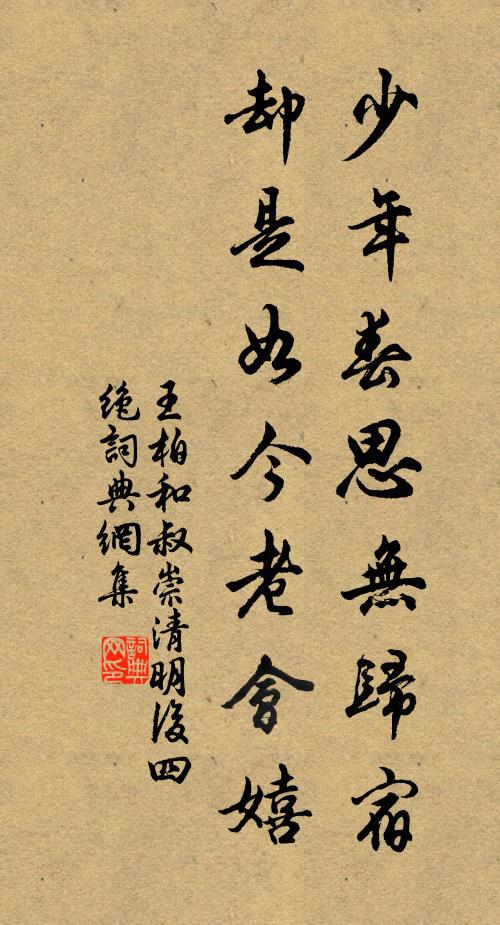 少年春思無歸宿
却是如今老會嬉
王柏和叔崇清明後四
絶詞典網集
詞典
网印